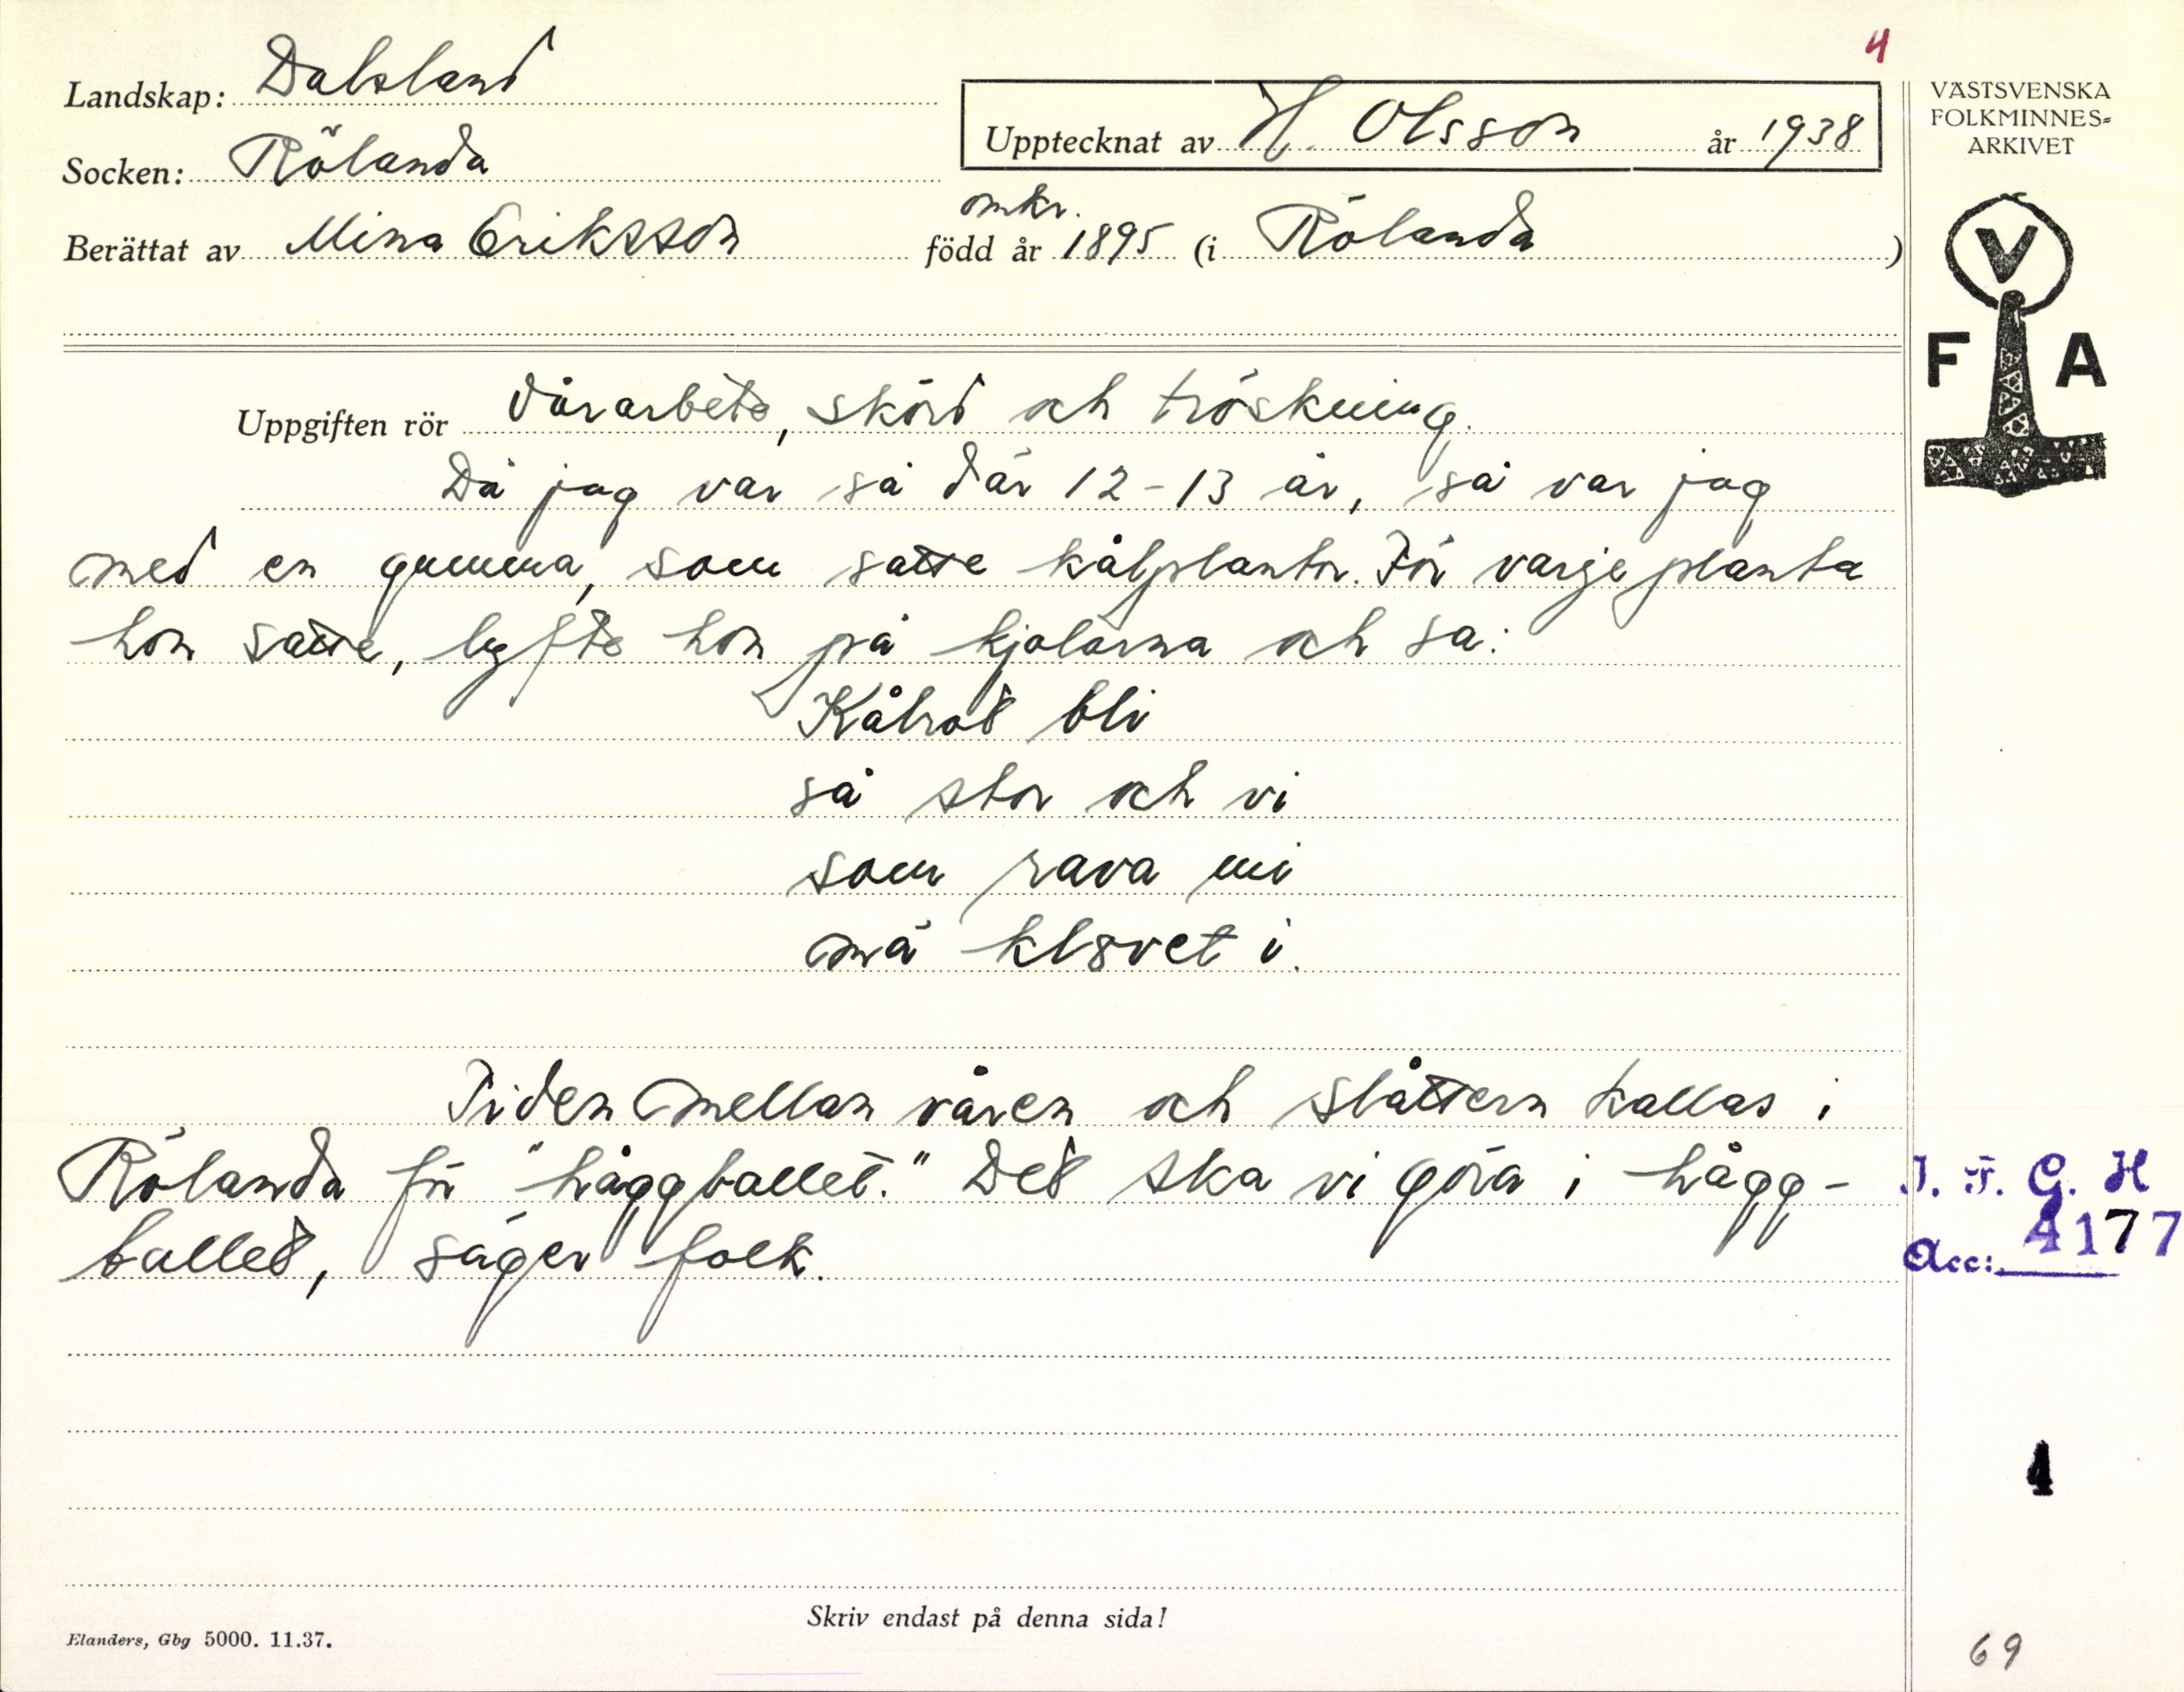 4
Landskap: Dalsland
Socken: Rölanda
Berättat av Mina Eriksson
Upptecknat av H. Olsson år 1938
omkr.
född år 1895 (i Rölanda )
VÄSTSVENSKA
FOLKMINNES=
ARKIVET
V
F A
Uppgiften rör Vårarbete, skörd och tröskning.
Då jag var så där 12-13 år, så var jag
med en gumma, som satte kålplantor. För varje planta
hon satte, lyfte hon på kjolarna och sa:
Kålrot bli
så stor och vi
som rava mi
mä klovet i.
Tiden mellan våren och slåttern kallas i
Rölanda för "håggballet." Det ska vi göra i hågg-
ballet, säger folk.
I. F. G. H
Acc: 4177
4
Skriv endast på denna sida!
Elanders, Gbg 5000. 11.37.
69